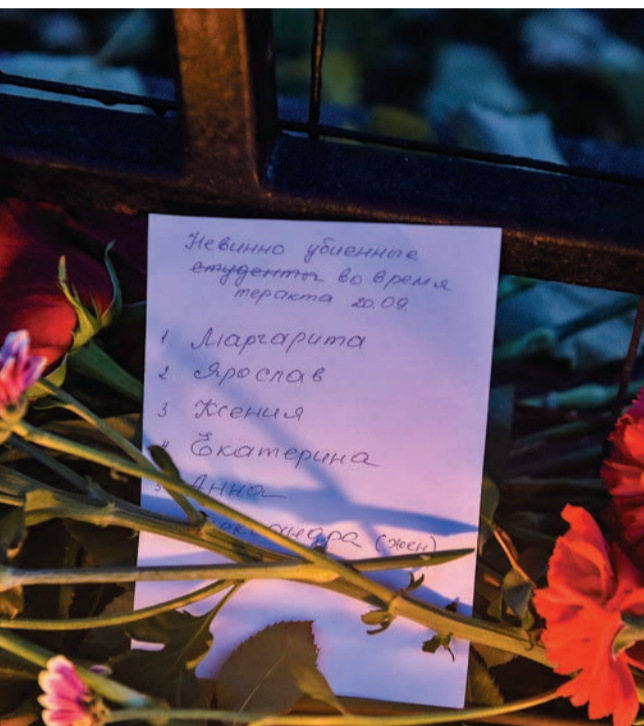 Невинно убиенные
студенты во время
теракта 20.09.
1 Маргарита
2 Ярослав
3 Ксения
4 Екатерина
5 Анна
(жен)